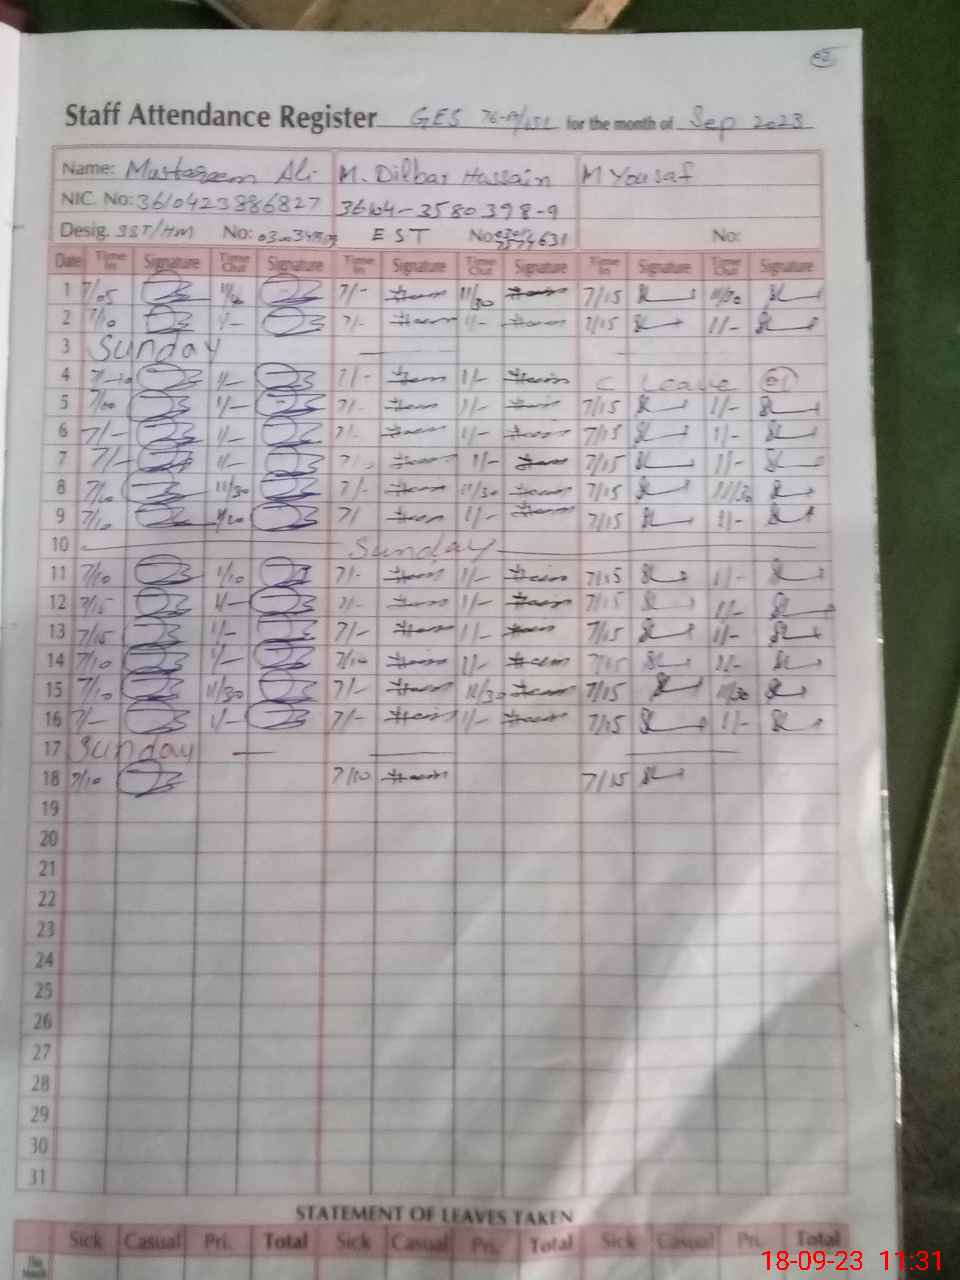 Staff Attendance Register GES for the month of Sep 2023
Name: Mustaqeem Ali M. Dilbar Hussain M Yousaf
NIC. No: 3610423886827 36104-3580398-9
Desig. SST/HM No: EST No: No:
Date Time In Signature Time Out Signature Time In Signature Time Out Signature Time In Signature Time Out Signature
1 7/05 7/- 11/30 7/15 11/30
2 7/10 1/- 7/- 1/- 7/15 1/-
3 Sunday
4 1/- 7/- 1/- C Leave 01
5 1/- 7/- 1/- 7/15 1/-
6 7/- 1/- 7/- 1/- 7/15 1/-
7 7/- 1/- 1/- 7/15 1/-
8 11/30 7/- 11/30 7/15 11/30
9 7/10 7/ 1/- 7/15 1/-
10 Sunday
11 7/10 1/10 7/- 1/- 7/15 1/-
12 7/15 1/- 7/- 1/- 7/15 1/-
13 7/15 1/- 7/- 1/- 7/15 1/-
14 7/10 1/- 7/10 1/- 7/15 1/-
15 7/10 11/30 7/- 11/30 7/15 11/30
16 7/- 1/- 7/- 1/- 7/15 1/-
17 Sunday
18 7/10 7/10 7/15
19
20
21
22
23
24
25
26
27
28
29
30
31
STATEMENT OF LEAVES TAKEN
Sick Casual Pri. Total Sick Casual Pri. Total Sick Casual Pri. Total
This Month
18-09-23 11:31